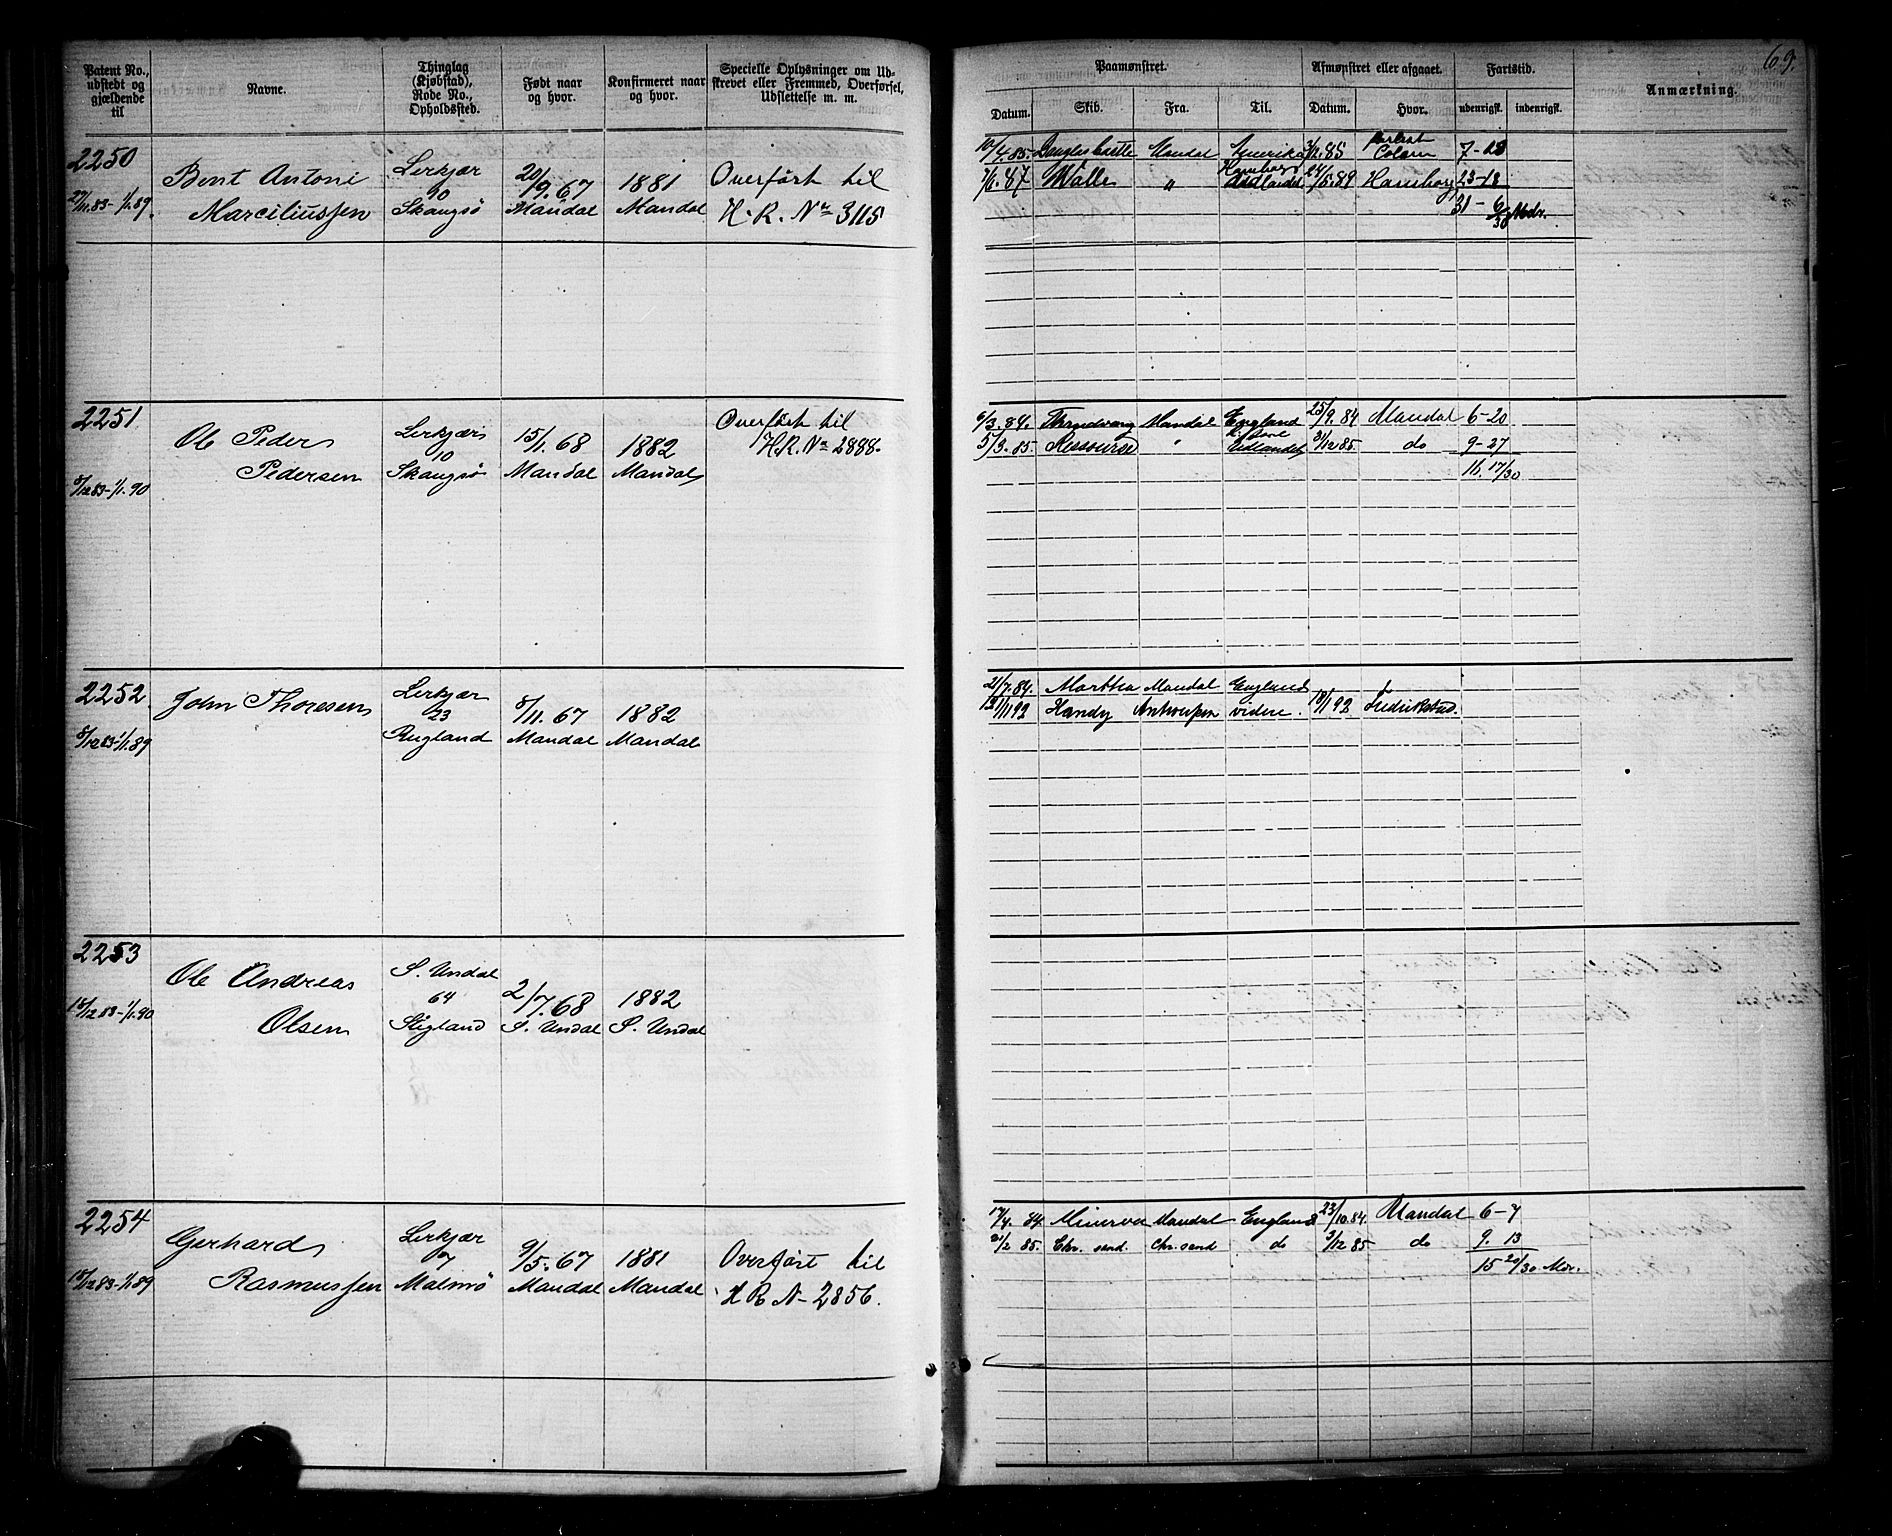 Patent No., udstedt og gjældende til
Navne.
Thinglag (Kjøbstad), Rode No., Opholdssted.
Født naar og hvor.
Konfirmeret naar og hvor.
Specielle Oplysninger om Udskrevet eller Fremmed, Overførsel, Udslettelse m. m.
Paamønstret.
Datum.
Skib.
Fra.
Til.
Afmønstret eller afgaaet.
Datum.
Hvor.
Fartstid.
udenrigsk.
indenrigsk.
Anmærkning.
69.
2250
27/11.83-1/1.89.
Bent Antoni
Marciliussen
Lerkjær
10
Skaugsø
20/9.67
Mandal
1881
Mandal
Overført til
H. R. No 3115
10/4.85. Douglas Castle Mandal Amerika 85 Colon 7-18
87 Mandal " Hamborg Udlandet 24/8.89 Hamborg 23-18
31-6/30 Mdr.
2251
8/12 83-1/1.90
Ole Peder
Pedersen
Lerkjær
10
Skaugsø
15/1.68
Mandal
1882
Mandal
Overført til
H.R. No 2888.
6/3.84. Mandal England 25/9.84 Mandal 6-20
5/3.85. Ressource " Udlandet 31/12 85 do 9-27
16. 17/30
2252
8/12 83-1/1.89
John Thoresen
Lerkjær
23
Rugland
8/11.67
Mandal
1882
Mandal
21/7.84. Martha Mandal England
92 Handy Antwerpen videre. 92 Fredrikstad.
2253
18/12 83-1/1.90
Ole Andreas
Olsen
S. Undal
64
Stigland
2/7.68
S. Undal
1882
S. Undal
2254
18/12 83-1/1.89
Gerhard
Rasmussen
Lerkjær
7
Malmø
9/5.67
Mandal
1881
Mandal
Overført til
H R N- 2856.
17/4. 84. Minerva Mandal England 23/10.84. Mandal 6-7
21/2 85. Chr. sand. Chr. sand do 3/12 85 do 9. 13
15 20/30 Mdr.